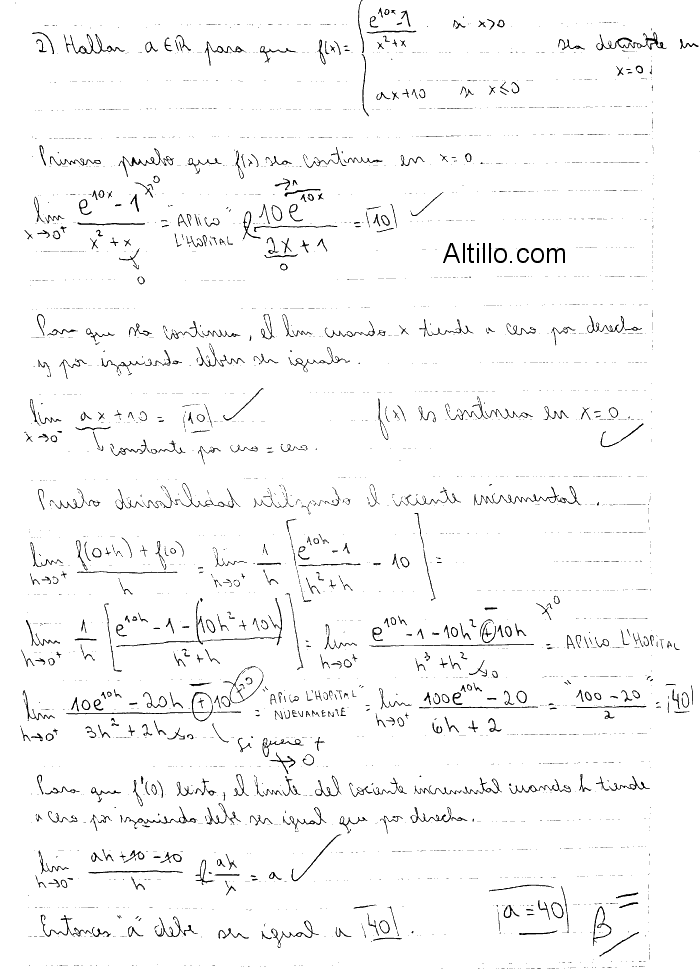 2) Hallar a ∈ ℝ para que f(x) = { (e^{10x} - 1)/(x² + x) si x>0 ; ax+10 si x≤0 sea derivable en x=0.
Primero pruebo que f(x) sea continua en x=0.
lim x→0⁺ (e^{10x} - 1)/(x² + x) = "APLICO L'HOPITAL" (10e^{10x})/(2x + 1) = 10 ✓
→0
→1
0
0
Altillo.com
Para que sea continua, el lim cuando x tiende a cero por derecha
y por izquierda deben ser iguales.
lim x→0⁻ ax + 10 = 10 ✓ f(x) es continua en x=0. ✓
↳ constante por cero = cero.
Pruebo derivabilidad utilizando el cociente incremental.
lim h→0⁺ (f(0+h) + f(0))/h = lim h→0⁺ 1/h [(e^{10h} - 1)/(h² + h) - 10] =
lim h→0⁺ 1/h [(e^{10h} - 1 - (10h² + 10h))/(h² + h)] = lim h→0⁺ (e^{10h} - 1 - 10h² + 10h)/(h³ + h²) = APLICO L'HOPITAL
→0
→0
lim h→0⁺ (10e^{10h} - 20h + 10)/(3h² + 2h) = "APLICO L'HOPITAL NUEVAMENTE" = lim h→0⁺ (100e^{10h} - 20)/(6h + 2) = "(100 - 20)/2" = 40
→0
→0
si fuera +
↛ 0
Para que f'(0) exista, el límite del cociente incremental cuando h tiende
a cero por izquierda debe ser igual que por derecha.
lim h→0⁻ (ah + 10 - 10)/h = ah/h = a ✓
Entonces "a" debe ser igual a 40. a = 40 B